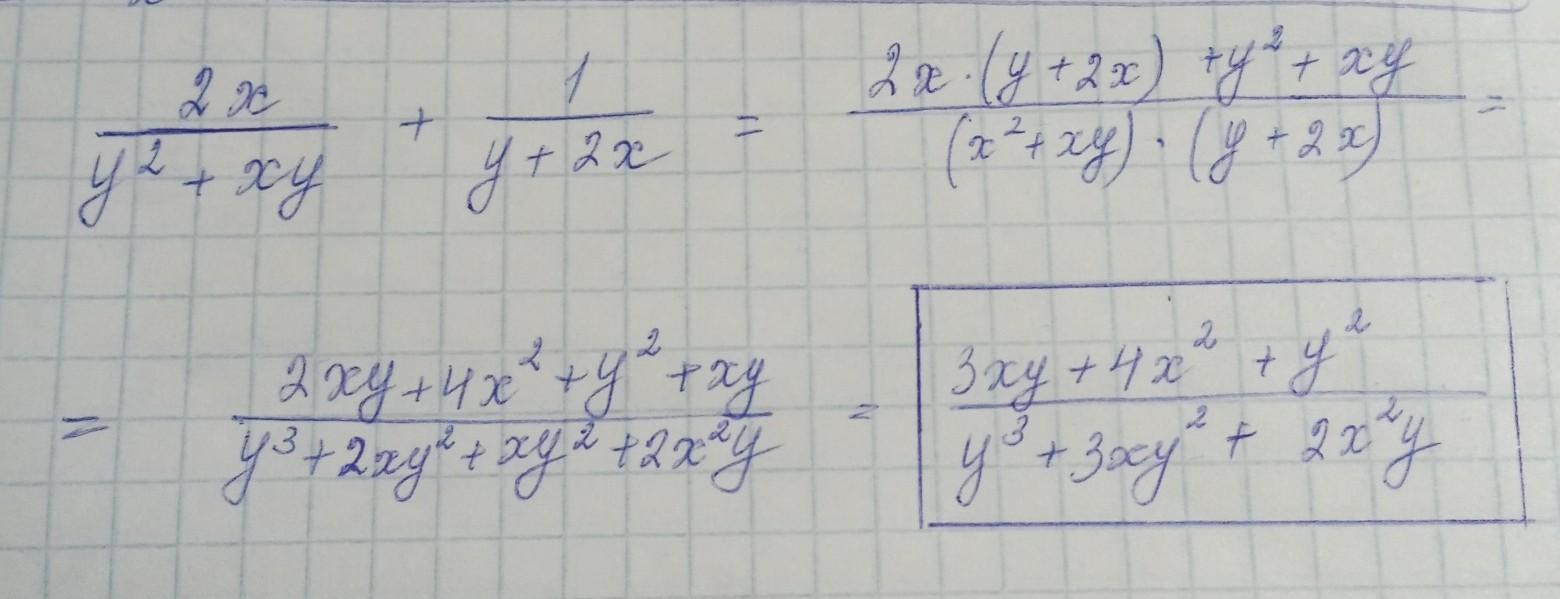 2x/(y²+xy) + 1/(y+2x) = (2x·(y+2x)+y²+xy)/((x²+xy)·(y+2x)) =
= (2xy+4x²+y²+xy)/(y³+2xy²+xy²+2x²y) = (3xy+4x²+y²)/(y³+3xy²+2x²y)